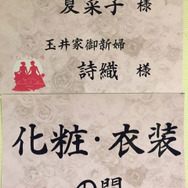 夏菜子 様
玉井家御新婦
詩織 様
化粧・衣装
の間